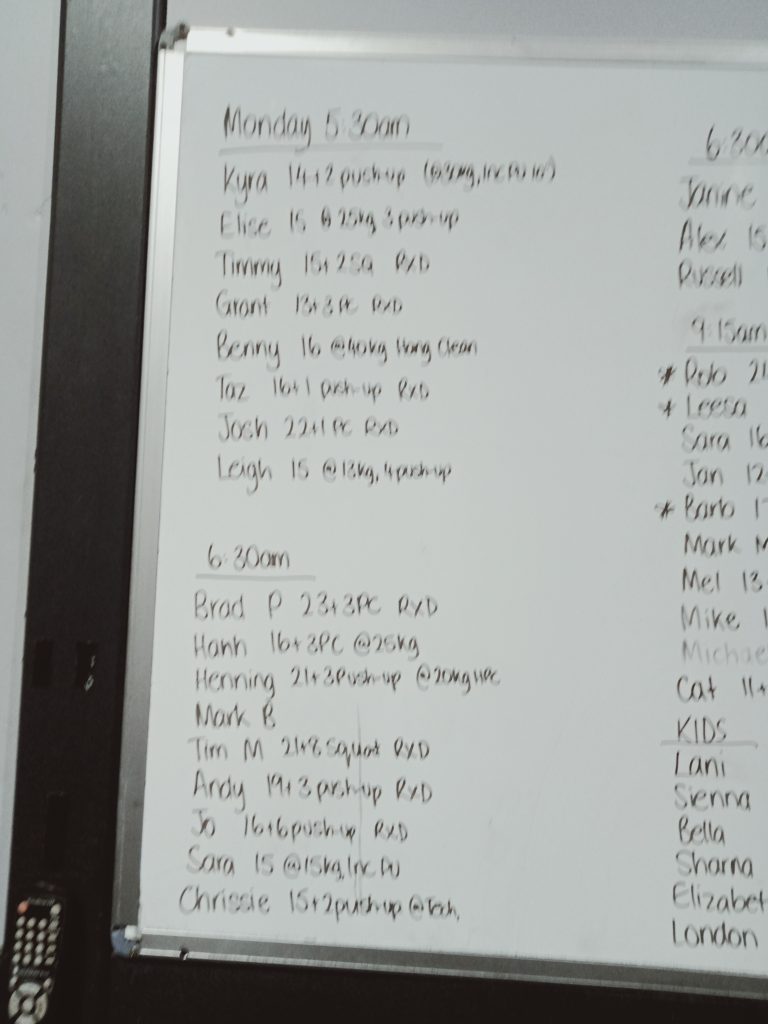 Monday 5:30am
Kyra 14+2 push-up (@30kg, Inc PU
Elise 15 @ 25kg 3 push-up
Timmy 15+2SQ RXD
Grant 13+3 PC RXD
Benny 16 @40kg Hang Clean
Taz 16+1 push-up RXD
Josh 22+1 PC RXD
Leigh 15 @13kg, 4 push-up
6:30am
Brad P 23+3PC RXD
Hanh 16+3PC @25kg
Henning 21+3Push-up @20kg HPC
Mark B
Tim M 21+8 squat RXD
Andy 19+3 push-up RXD
Jo 16+6 push-up RXD
Sara 15 @15kg, Inc PU
Chrissie 15+2 push-up @Tech,
Janine
Alex 15
Russell
9:15am
* Rob 21
* Leesa
Sara 16
Jan 12
* Barb 1
Mark M
Mel 13
Mike 1
Michae
Cat 11+
KIDS
Lani
Sienna
Bella
Sharna
Elizabet
London